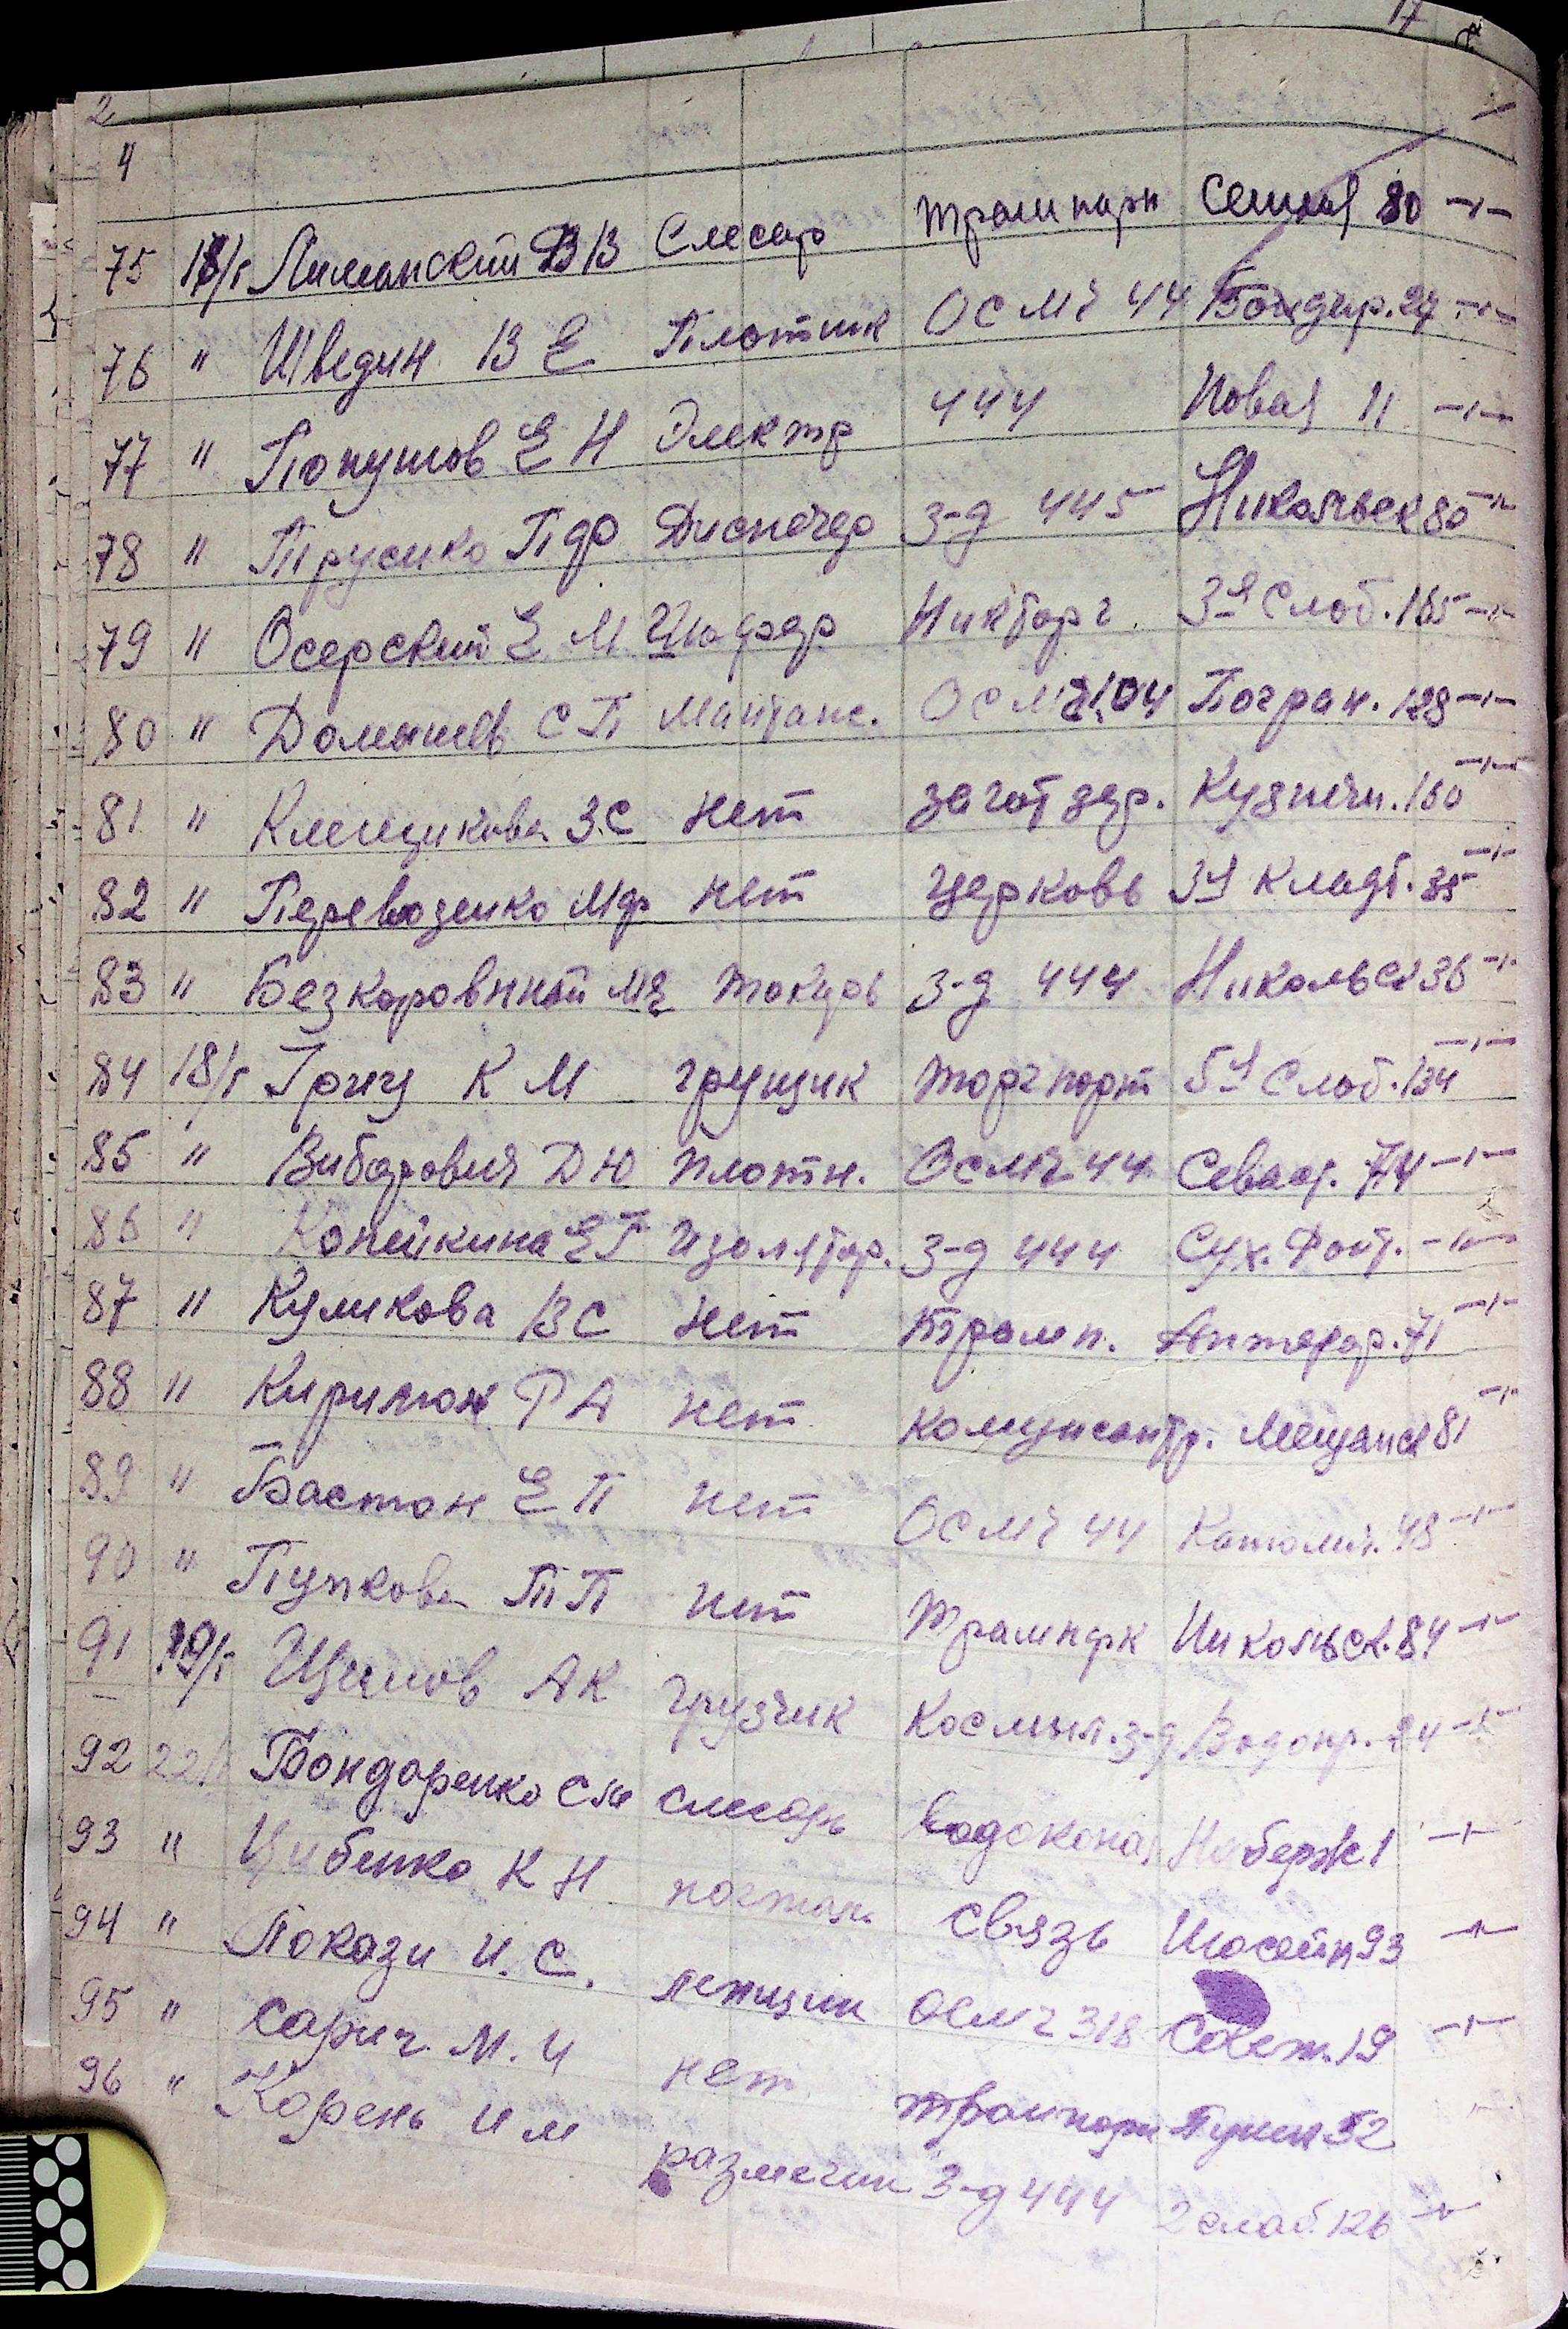 17
2
4
75 18/I Лиманский В В Слесар Трампарк Сенная 80 -"-
76 " Шведин В Е Плотник ОСМЧ 44 Бондар. 24 -"-
77 " Попушов Е Н Электр 444 Новая 11 -"-
78 " Трусико П Ф Диспечер З-д 445 Никольск 80 -"-
79 " Осерский Е М Шофер Никторг 3я Слоб. 165 -"-
80 " С П ОСМЧ 104 Погран. 128 -"-
81 " Клещикова З.С нет заготзер. Кузнечн. 130 -"-
82 " Перевозенко М Ф нет церковь 3я Кладб. 35 -"-
83 " Безкоровный М Е токарь З-д 444 Никольск 36 -"-
84 18/I Гриц К М грущик Торгпорт 5я Слоб. 134 -"-
85 " Вибарович Д Ю плотн. ОСМЧ 44 Севаст. 74 -"-
86 " Копейкина Е Г изолятор. З-д 444 Сух. Фонт. -"-
87 " Куликова В С нет Трамп. 71 -"-
88 " Кирилюк Р А нет Мещанск 81 -"-
89 " Бастон Е П нет ОСМЧ 44 Католич. 48 -"-
90 " Пупкова Т П нет Трампарк Никольск. 84 -"-
91 19/I А К грузчик З-д Водопр. 24 -"-
92 22/I Бондаренко С М слесарь водоканал Набереж 1 -"-
93 " Цибенко К Н почтальон связь Шосейн 93 -"-
94 " Покази И. С. ОСМЧ 318 Совет. 19 -"-
95 " Сарич М. И нет трампарк Пушк 52
96 " Корень И М разметчик З-д 444 2 слоб. 126 -"-